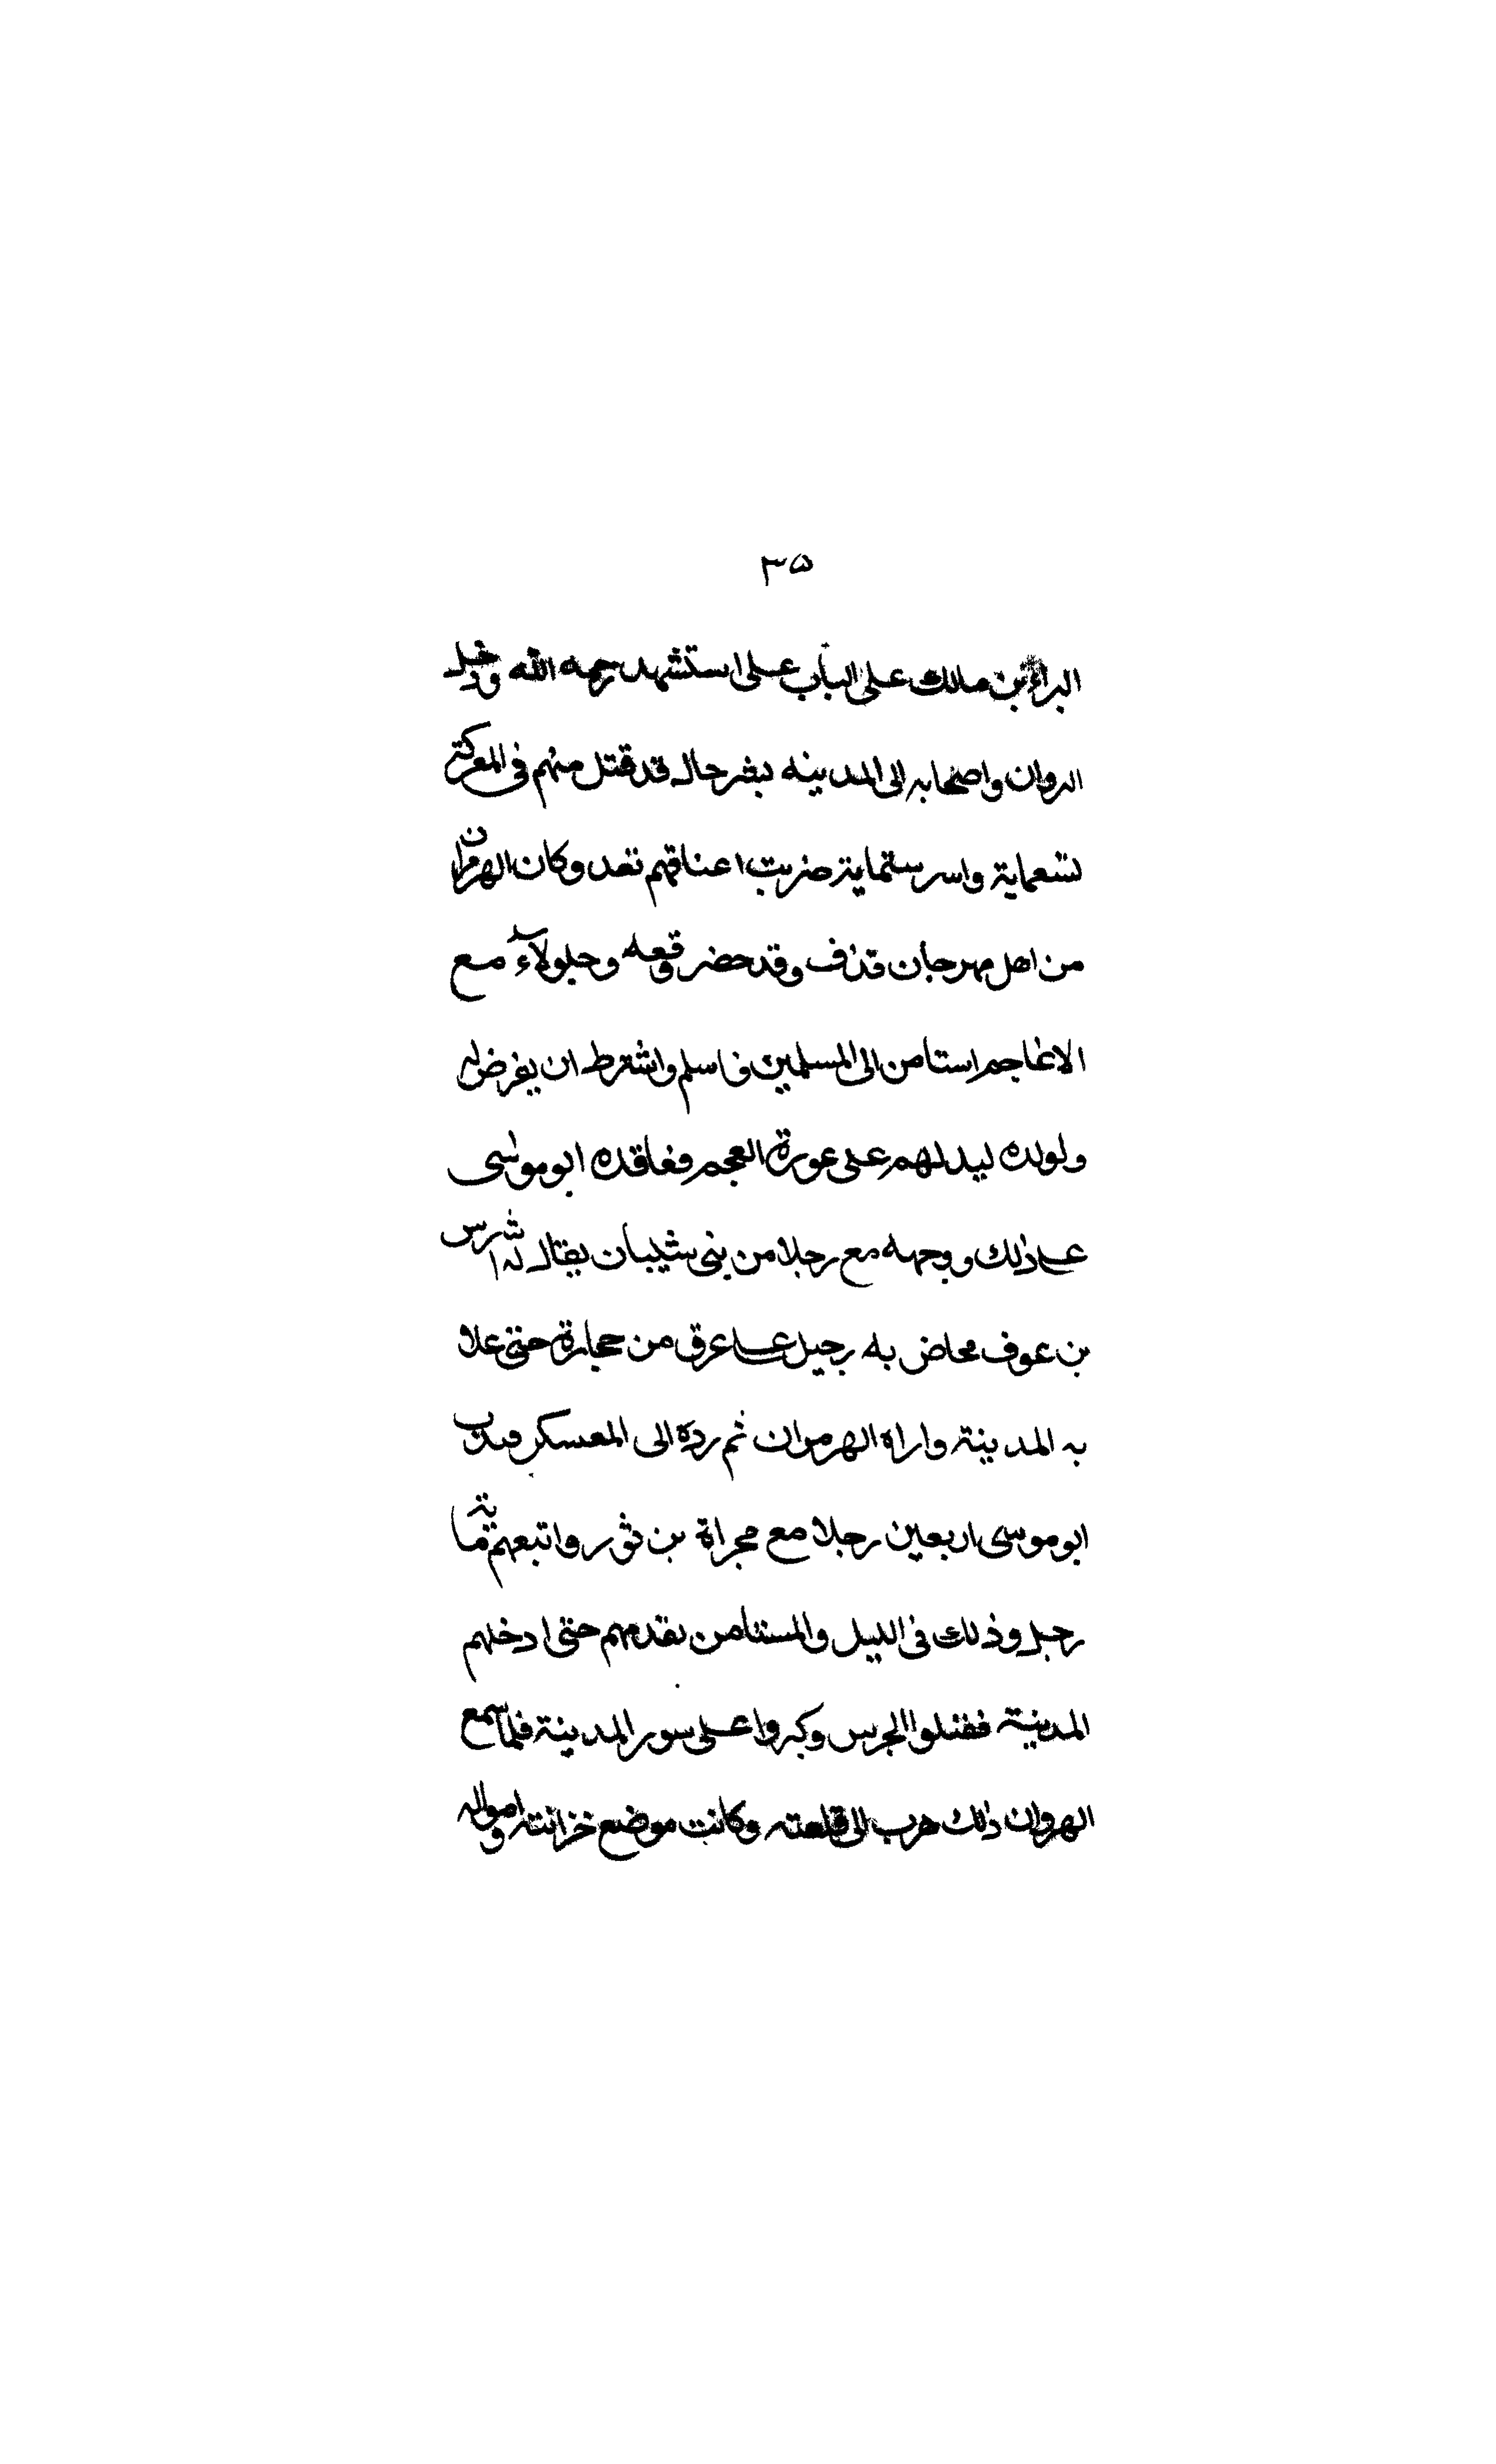 ٣٥
البراء بن مالك على الباب على استشهد رحمه الله ودخل
الهرمان واصحابه الى المدينه بشر حال قد قتل منهم فى المعركة
تسعماية واسر ستماية ضربت اعناقهم بعد وكان الهرمزان
من اهل مهرجان قذف وقد حضر وقعه وجلولاء مع
الاعاجم استامن الى المسلمين فاسلم واشترط ان يفرض له
ولولده ليدلهم على عورة العجم فعاقده ابو موسى
على ذلك ووجهه مع رجلا من بنى شيبان يقال له اشرس
بن عوف فخاض به رجيل على عرق من حجارة حتى علا
به المدينة واراه الهرموان ثم رده الى المعسكر فندب
ابو موسى اربعين رجلا مع مجراة بن ثور واتبعهم مائة
رجل وذلك فى الليل والمستامن يقدمهم حتى ادخلهم
المدينة فقتلوا الحرس وكبروا على سور المدينة فلما سمع
الهروان ذلك هرب الى قلعته وكانت موضع خزانته وامواله